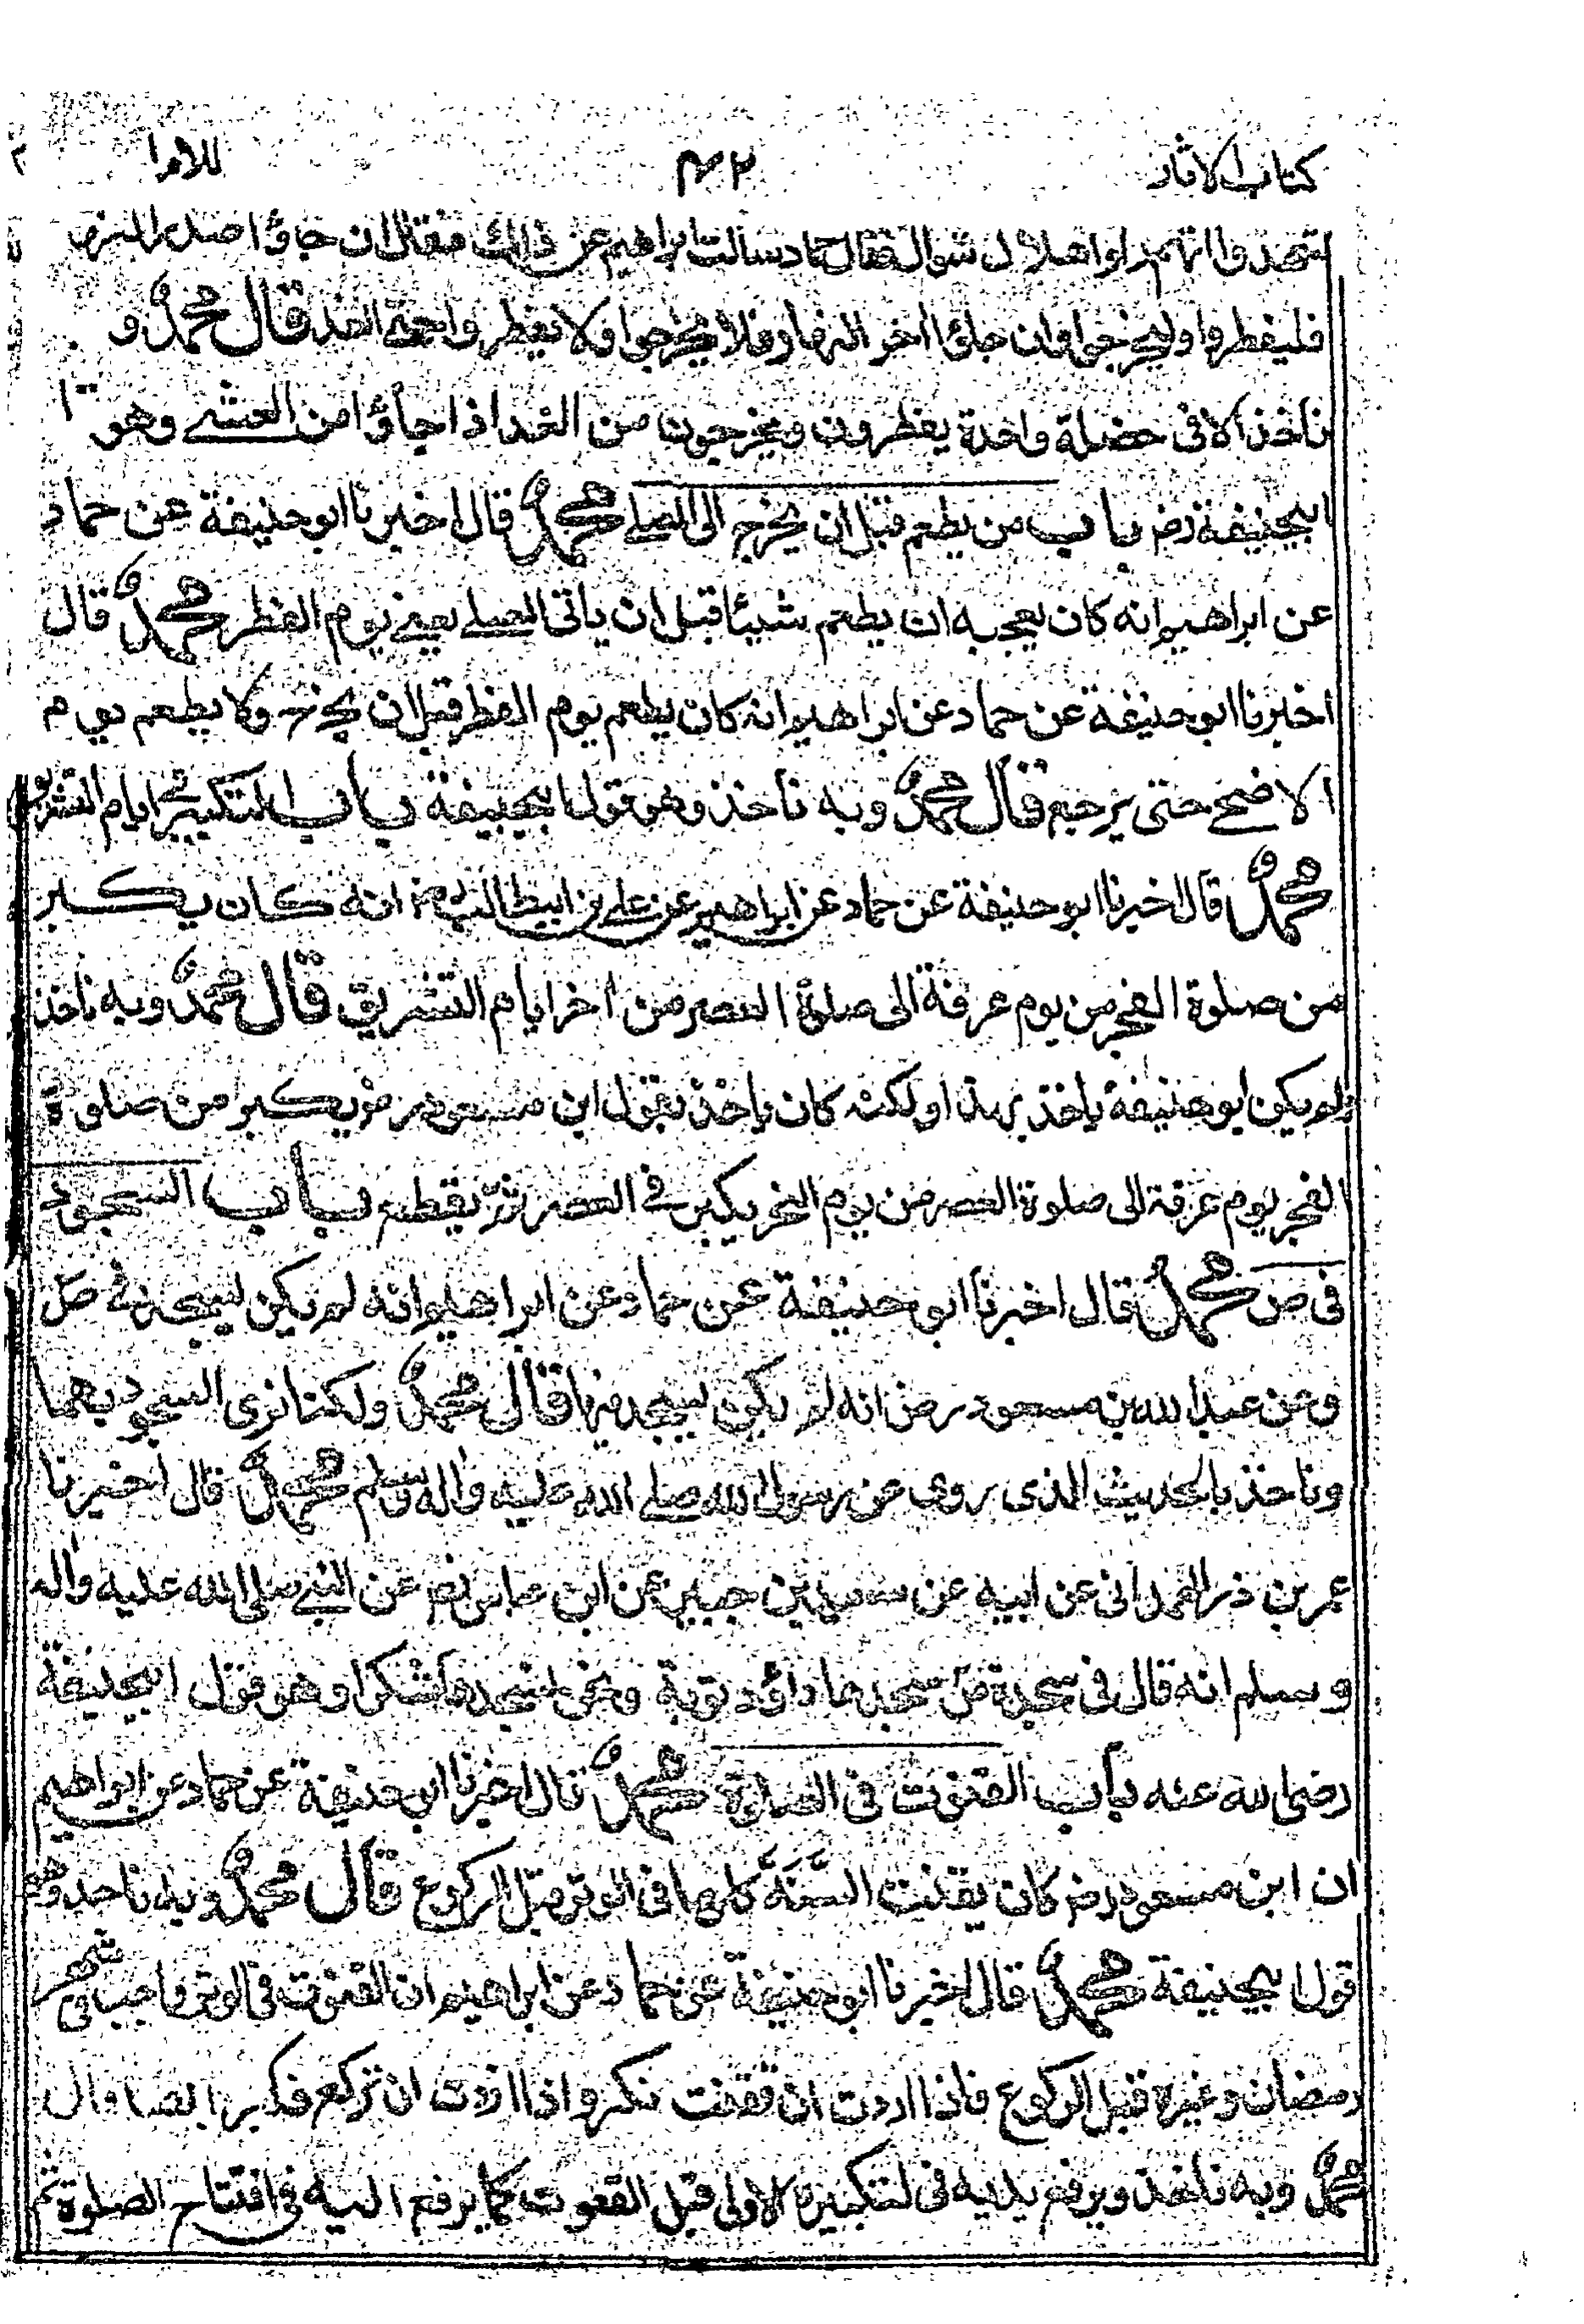 كتاب الآثار ٤٢
شهدوا انهم راوا هلال شوال فقال حماد سالت ابراهيم عن ذلك فقال ان جاؤا صدر النهار
فليفطروا وليخرجوا وان جاؤا اخر النهار فلا يخرجوا ولا يفطروا حتى الغد قال محمد و
ناخذ الا فى خصلة واحدة يفطرون ويخرجون من الغد اذا جاؤا من العشے وهو
ابيحنيفة رضـ باب من يطعم قبل ان يخرج الى المصلے محمد قال اخبرنا ابو حنيفة عن حماد
عن ابراهيم انه كان يعجبه ان يطعم شيئا قبل ان ياتى المصلے يعنے يوم الفطر محمد قال
اخبرنا ابو حنيفة عن حماد عن ابراهيم انه كان يطعم يوم الفطر قبل ان يخرج ولا يطعم يوم
الاضحے حتى يرجع قال محمد وبه ناخذ وهو قول ابيحنيفة باب التكبير فے ايام التشريق
محمد قال اخبرنا ابو حنيفة عن حماد عن ابراهيم عن علے بن ابيطالب رضـ انه كان يكبر
من صلوة الفجر من يوم عرفة الى صلوة العصر من اخر ايام التشريق قال محمد وبه ناخذ
ولم يكن ابو حنيفة ياخذ بهذا ولكنه كان ياخذ بقول ابن مسعود رضـ يكبر من صلوة
الفجر يوم عرفة الى صلوة العصر من يوم النحر يكبر فے العصر ثم يقطع باب السجود
فى ص محمد قال اخبرنا ابو حنيفة عن حماد عن ابراهيم انه لم يكن يسجد فے ص
وعن عبد الله بن مسعود رض انه لم يكن يسجد فيها قال محمد ولكنا نرى السجود فيها
وناخذ بالحديث الذى روى عن رسول الله صلے الله عليه واله وسلم محمد قال اخبرنا
عمر بن ذر الهمدانى عن ابيه عن سعيد بن جبير عن ابن عباس رضـ عن النبے صلى الله عليه واله
وسلم انه قال فى سجدة ص سجدها داؤد توبة ونحن نسجدها شكرا وهو قول ابيحنيفة
رضى الله عنه باب القنوت فى الصلوة محمد قال اخبرنا ابو حنيفة عن حماد عن ابراهيم
ان ابن مسعود رضـ كان يقنت السنة كلها فى الوتر قبل الركوع قال محمد وبه ناخذ وهو
قول ابيحنيفة محمد قال اخبرنا ابو حنيفة عن حماد عن ابراهيم ان القنوت فى الوتر واجب فى شهر
رمضان وغيره قبل الركوع فاذا اردت ان تقنت فكبر واذا اردت ان تركع فكبر ايضا قال
محمد وبه ناخذ ويرفع يديه فى التكبيرة الاولى قبل القنوت كما يرفع اليه فى افتتاح الصلوة ثم